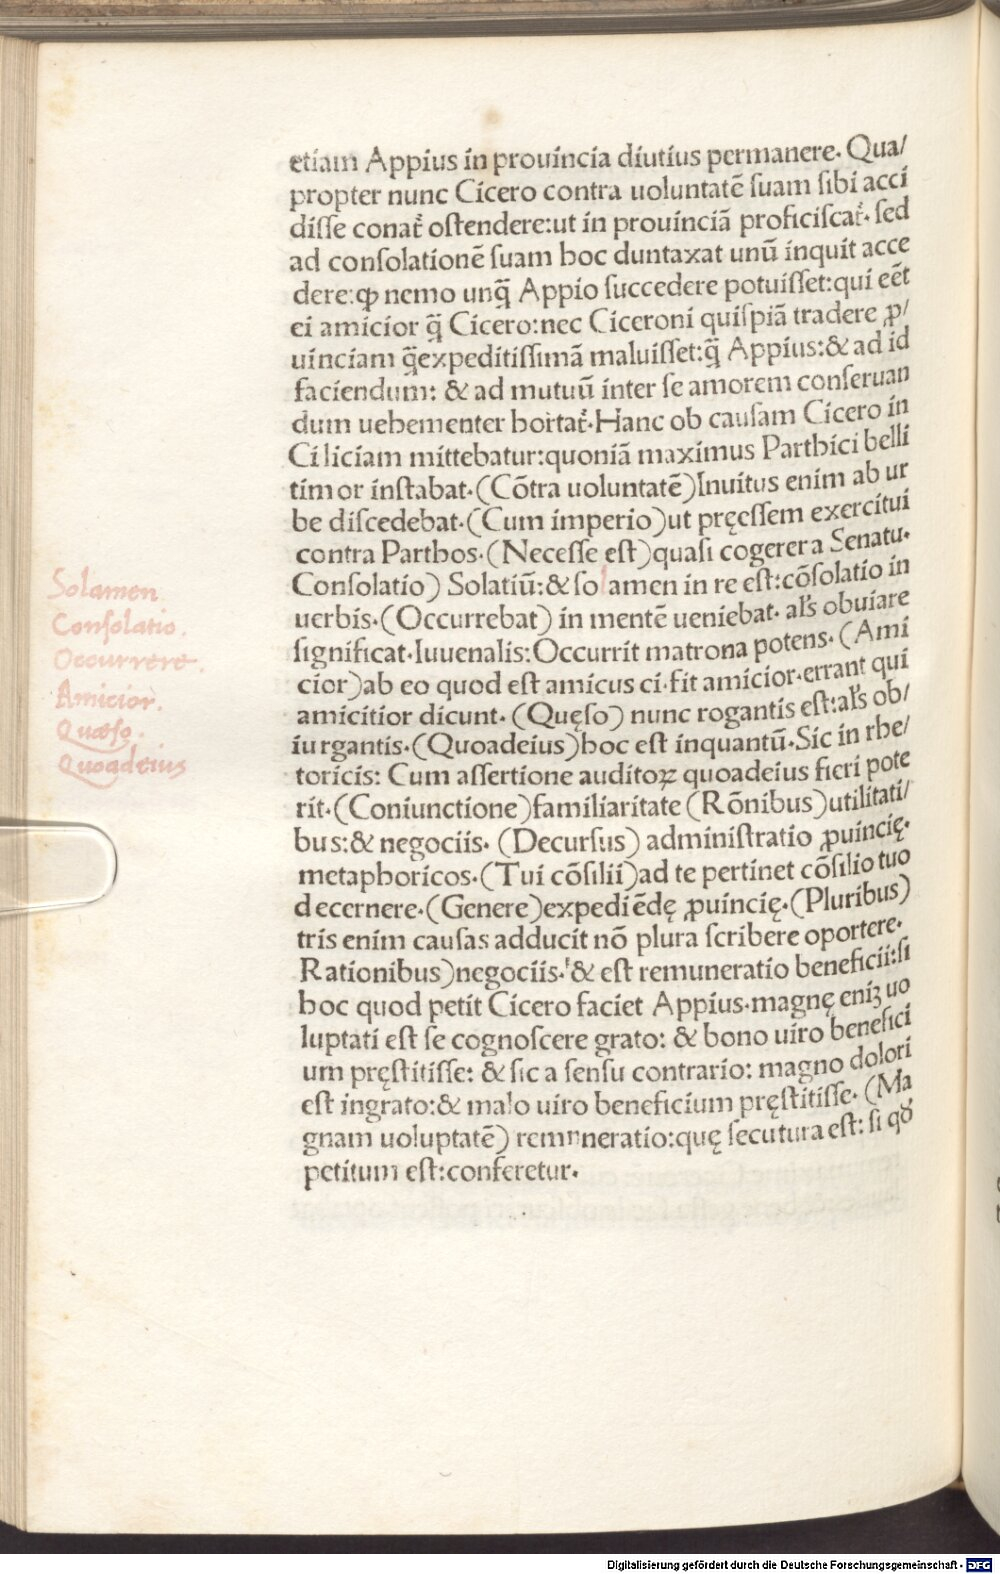 etiam Appius in prouincia diutius permanere. Qua/
propter nunc Cicero contra uoluntatē suam sibi acci
disse conat᷑ ostendere:ut in prouinciā proficiscat᷑. sed
ad consolationē suam hoc duntaxat unū inquit acce
dere:ꝙ nemo unq̄ Appio succedere potuisset:qui eēt
ei amicior q̄ Cicero:nec Ciceroni quispiā tradere ꝓ/
uinciam q̄expeditissimā maluisset:q̄ Appius:& ad id
faciendum: & ad mutuū inter se amorem conseruan
dum uehementer hortat᷑.Hanc ob causam Cicero in
Ciliciam mittebatur:quoniā maximus Parthici belli
timor instabat.(Cōtra uoluntatē)Inuitus enim ab ur
be discedebat.(Cum imperio)ut pręessem exercitui
contra Parthos.(Necesse est)quasi cogerer a Senatu.
Consolatio) Solatiū:& solamen in re est:cōsolatio in
uerbis.(Occurrebat) in mentē ueniebat. al's obuiare
significat.Iuuenalis:Occurrit matrona potens. (Ami
cior)ab eo quod est amicus ci.fit amicior.errant qui
amicitior dicunt. (Quęso) nunc rogantis est:al's ob/
iurgantis.(Quoadeius)hoc est inquantū.Sic in rhe/
toricis: Cum assertione auditoꝝ quoadeius fieri pote
rit.(Coniunctione)familiaritate (Rōnibus)utilitati/
bus:& negociis. (Decursus) administratio ꝓuincię.
metaphoricos.(Tui cōsilii)ad te pertinet cōsilio tuo
decernere.(Genere)expediēdę ꝓuincię.(Pluribus)
tris enim causas adducit nō plura scribere oportere.
Rationibus)negociis.'& est remuneratio beneficii:si
hoc quod petit Cicero faciet Appius.magnę eniꝫ uo
luptati est se cognoscere grato: & bono uiro benefici
um pręstitisse: & sic a sensu contrario: magno dolori
est ingrato:& malo uiro beneficium pręstitisse. (Ma
gnam uoluptatē) remnneratio:quę secutura est: si qđ
petitum est:conferetur.
Solamen
Consolatio.
Occurrere.
Amicior.
Quæso.
Quoadeius
Digitalisierung gefördert durch die Deutsche Forschungsgemeinschaft - DFG